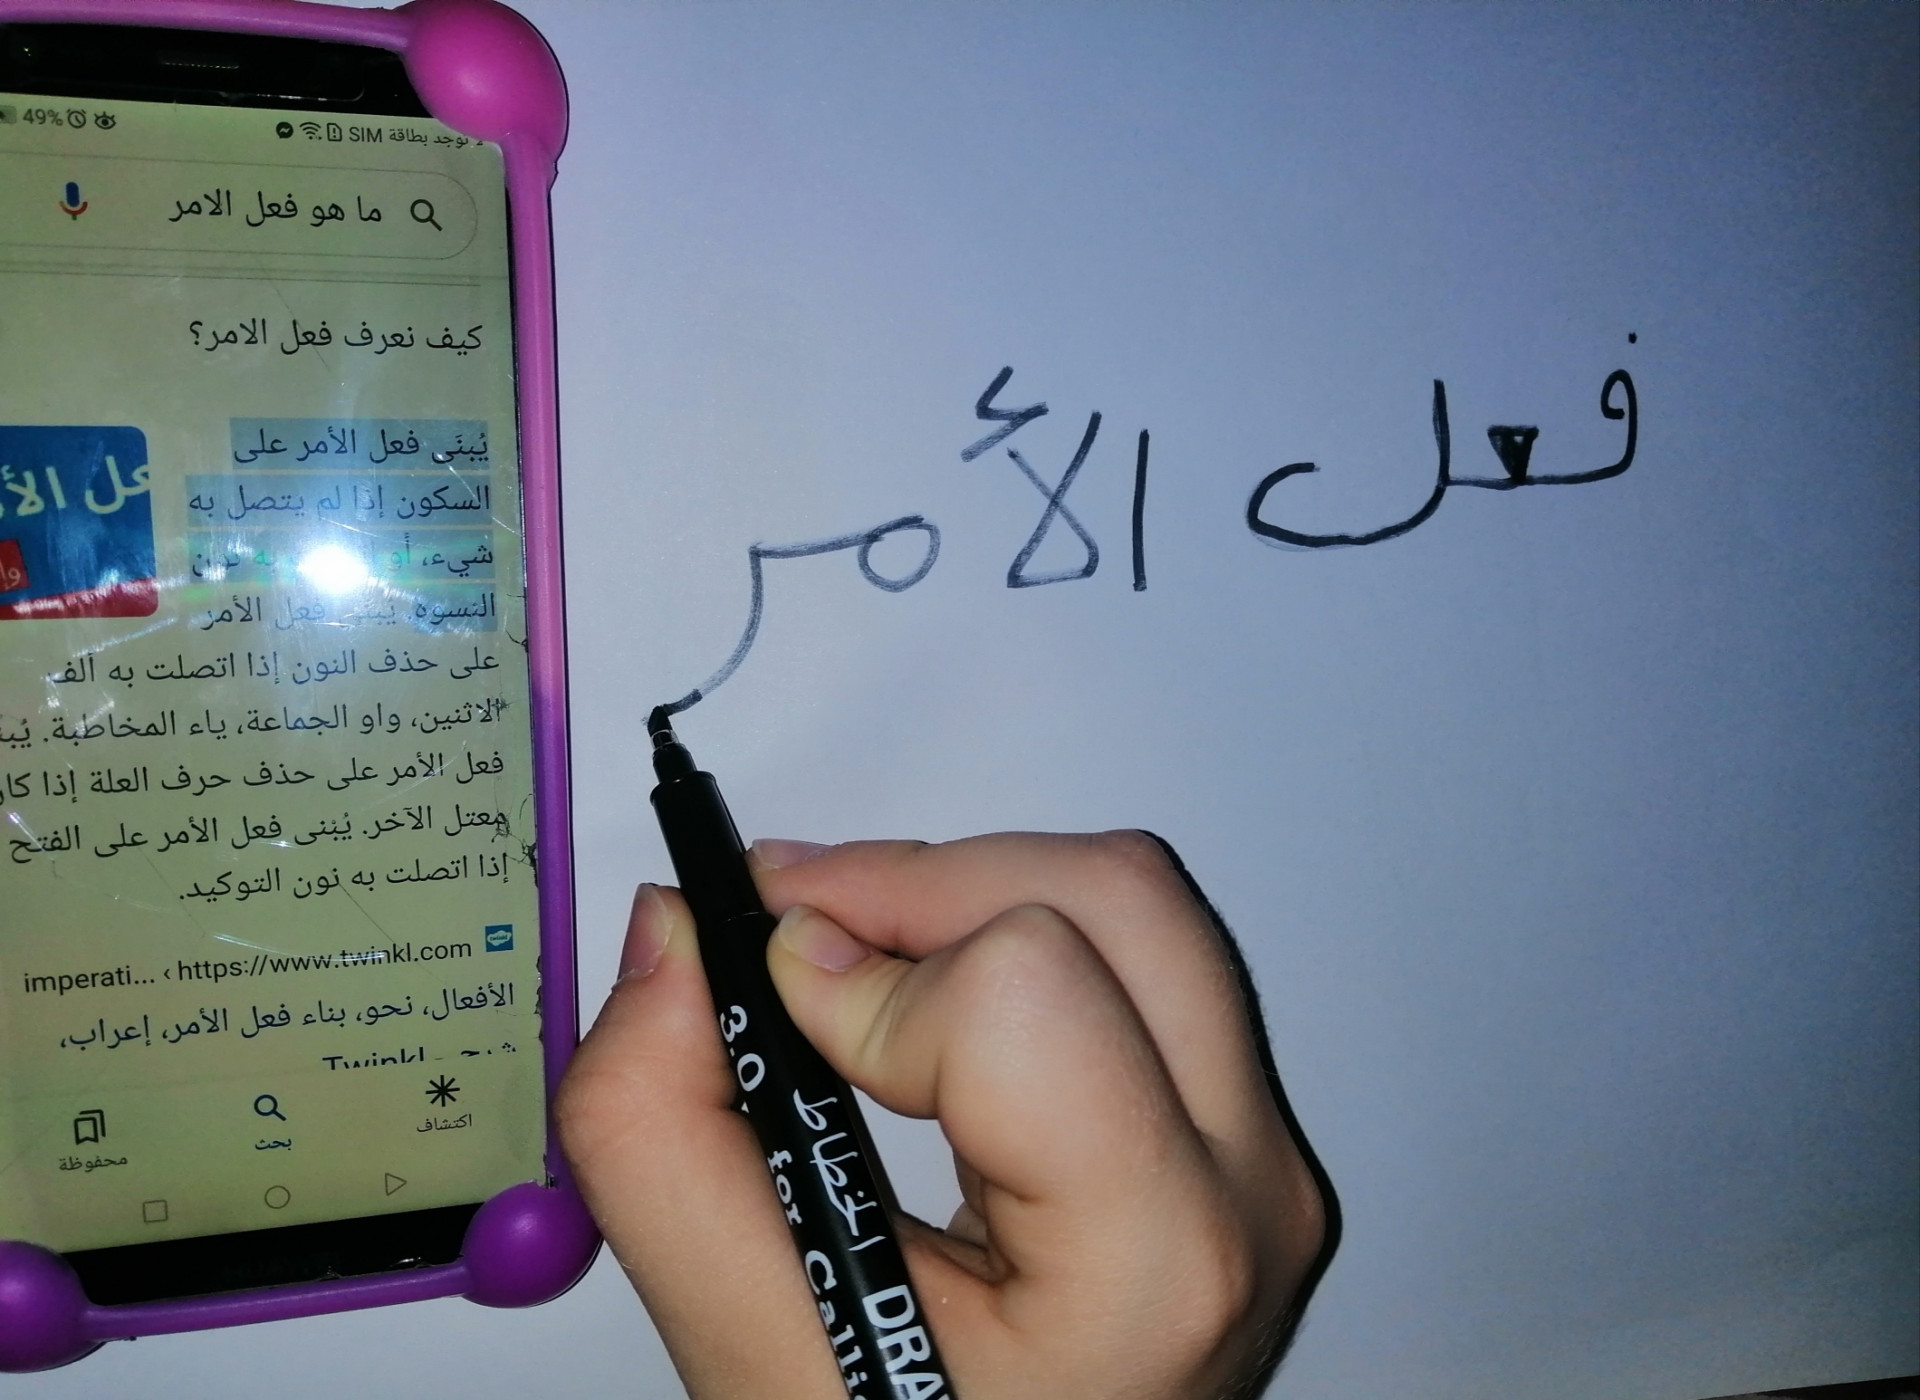 49%
لا توجد بطاقة SIM
ما هو فعل الامر
كيف نعرف فعل الامر؟
يُبنَى فعل الأمر على
السكون إذا لم يتصل به
شيء، أو به نون
النسوة. يُبنى فعل الأمر
على حذف النون إذا اتصلت به ألف
الاثنين، واو الجماعة، ياء المخاطبة.
فعل الأمر على حذف حرف العلة إذا
معتل الآخر. يُبْنى فعل الأمر على الفتح
إذا اتصلت به نون التوكيد.
https://www.twinkl.com › imperati...
الأفعال، نحو، بناء فعل الأمر، إعراب،
Twinkl
اكتشاف
بحث
محفوظة
فعل الأمر
3.0
الخطاط
for